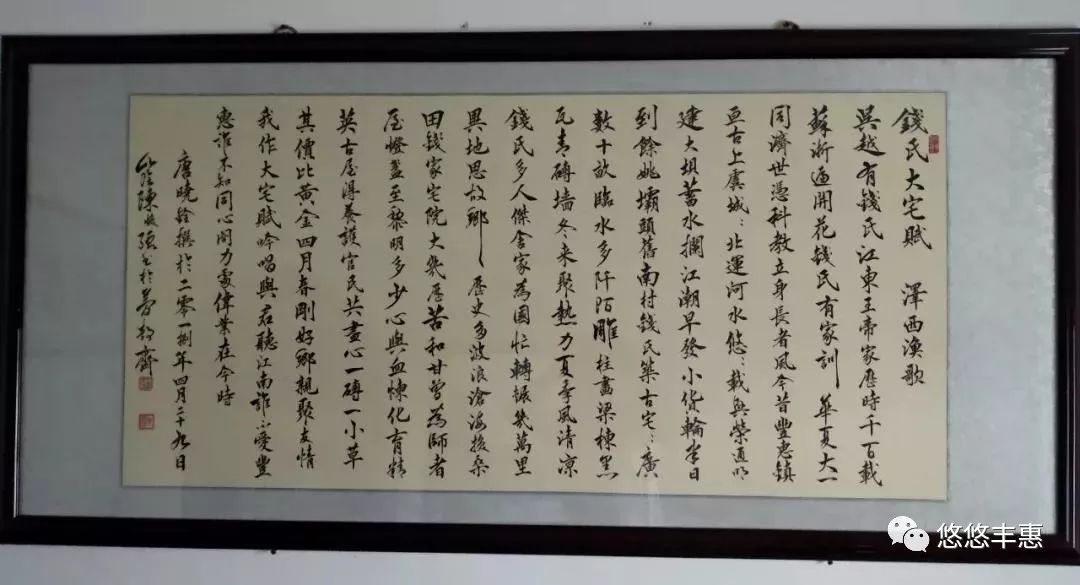 錢氏大宅賦 澤西漁歌
吳越有錢氏江東王帝家歷時千百載
蘇浙遍開花錢氏有家訓 華夏大一
同濟世憑科教立身長者風今昔豐惠鎮
亘古上虞城：北運河水悠：載與榮道明
建大壩蓄水攔江潮早發小貨輪 日
到餘姚壩頭舊南村錢氏築古宅：廣
數十畝臨水多阡陌雕柱畫梁棟黑
瓦青磚墙冬来聚熱力夏季風清凉
錢氏多人傑舍家為國忙轉輾幾萬里
異地思故鄉 歷史多波浪滄海换桑
田錢家宅院大幾歷苦和甘曾為師者
屋燈盞至黎明多少心與血煉化育精
英古屋得養護官民共盡心一磚一小草
其價比黃金四月春剛好鄉親聚友情
我作大宅賦吟唱與君聽江南誰不愛豐
惠誰不知同心閤力處偉業在今時
唐曉 撰於二零一捌年四月二十九日
陳 於 齋
悠悠丰惠